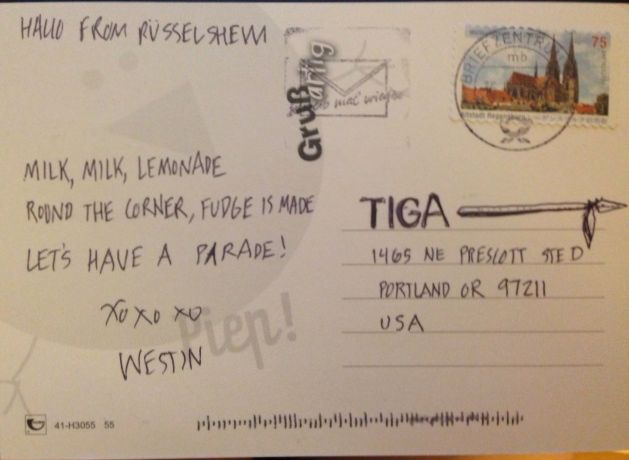 HALLO FROM RÜSSELSHEIM
Grußartig
BRIEFZENTRUM
mb
75
Altstadt Regensburg
MILK, MILK, LEMONADE
ROUND THE CORNER, FUDGE IS MADE
LET'S HAVE A PARADE!
XO XO XO
WESTIN
Piep!
TIGA
1465 NE PRESCOTT STE D
PORTLAND OR 97211
USA
41-H3055 55